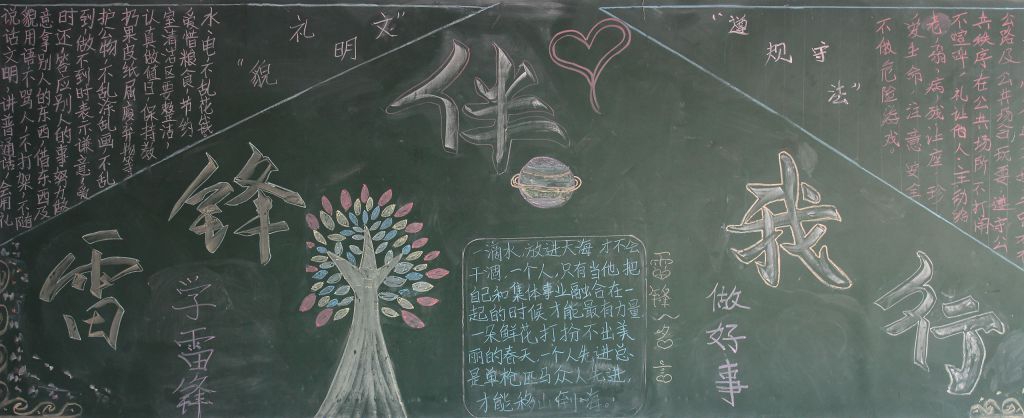 雷锋伴我行
文
明
礼
"貌
"遵
规
守
法"
学雷锋
做好事
雷锋名言
滴水,放进大海才不会
干涸,一个人,只有当他把
自己和集体事业融合在一
起的时候才能最有力量
一朵鲜花打扮不出美
丽的春天,一个人先进总
是单枪匹马众人先进,
才能移山倒海。
水、电,不乱花钱
爱惜粮食,节约
室清洁区要整洁,
认真做值日,保持教
扔果皮纸屑废弃物等
护公物,不乱涂乱画,不乱
到、做不到时表示歉意,爱
时还,答应别人的事努力做
意拿别人的东西,借东西及
貌用语不骂人,不打架,不随
说话文明,讲普通话,会用礼
公路及公共场合玩耍,遵守公
共秩序,在公共场所不打闹
不喧哗,礼让他人,主动给
老弱病残让座,珍
爱生命,注意安全
不做危险游戏。